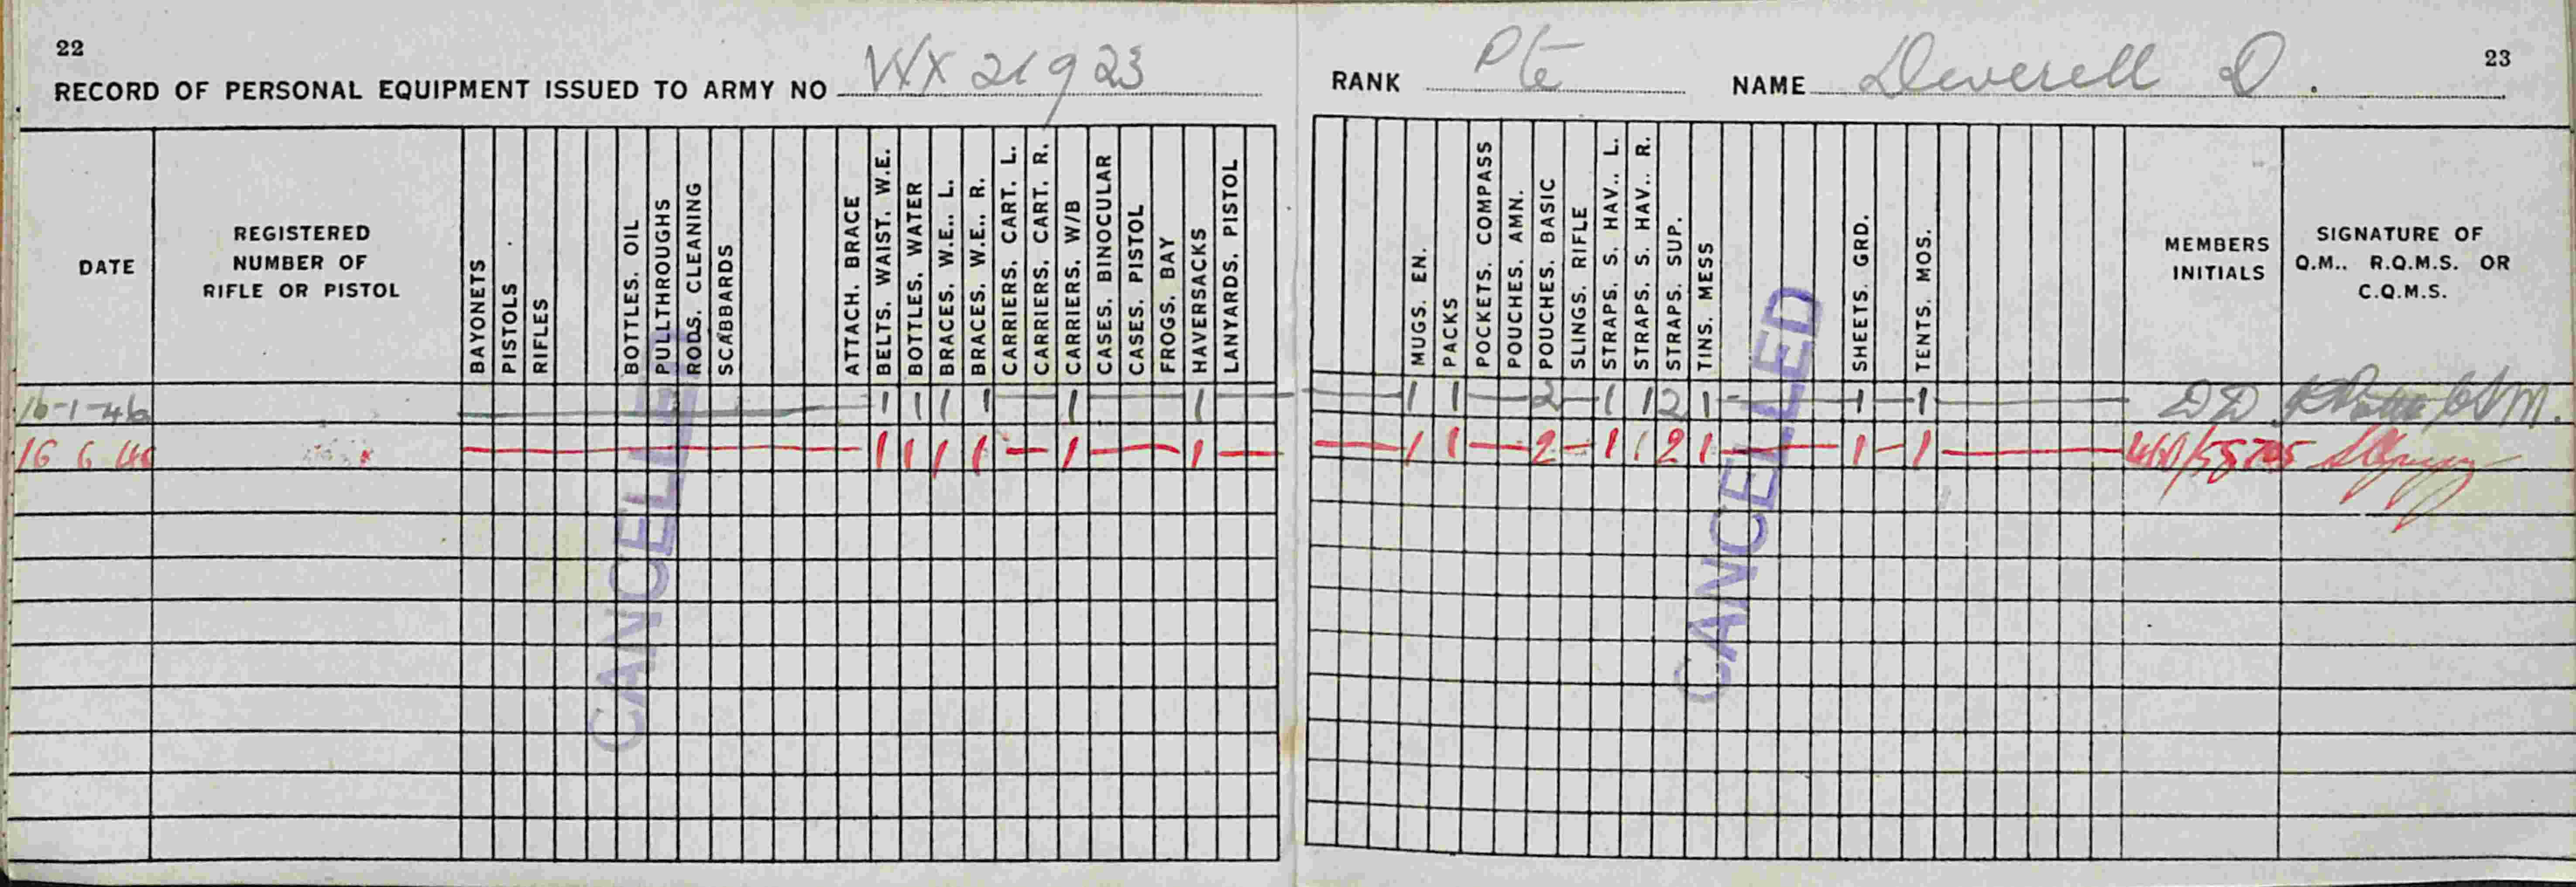 22
RECORD OF PERSONAL EQUIPMENT ISSUED TO ARMY NO WX 21923
RANK Pte NAME Deverell D.
23
DATE
REGISTERED NUMBER OF RIFLE OR PISTOL
BAYONETS
PISTOLS
RIFLES
BOTTLES. OIL
PULLTHROUGHS
RODS. CLEANING
SCABBARDS
ATTACH. BRACE
BELTS. WAIST. W.E.
BOTTLES. WATER
BRACES. W.E.. L.
BRACES. W.E.. R.
CARRIERS. CART. L.
CARRIERS. CART. R.
CARRIERS. W/B
CASES. BINOCULAR
CASES. PISTOL
FROGS. BAY
HAVERSACKS
LANYARDS. PISTOL
MUGS. EN.
PACKS
POCKETS. COMPASS
POUCHES. AMN.
POUCHES. BASIC
SLINGS. RIFLE
STRAPS. S. HAV.. L.
STRAPS. S. HAV.. R.
STRAPS. SUP.
TINS. MESS
SHEETS. GRD.
TENTS. MOS.
MEMBERS INITIALS
SIGNATURE OF Q.M.. R.Q.M.S. OR C.Q.M.S.
16-1-46 1 1 1 1 1 1 1 1 2 1 1 2 1 1 1 DD
16 6 46 1 1 1 1 1 1 1 1 2 1 1 2 1 1 1
CANCELLED
CANCELLED